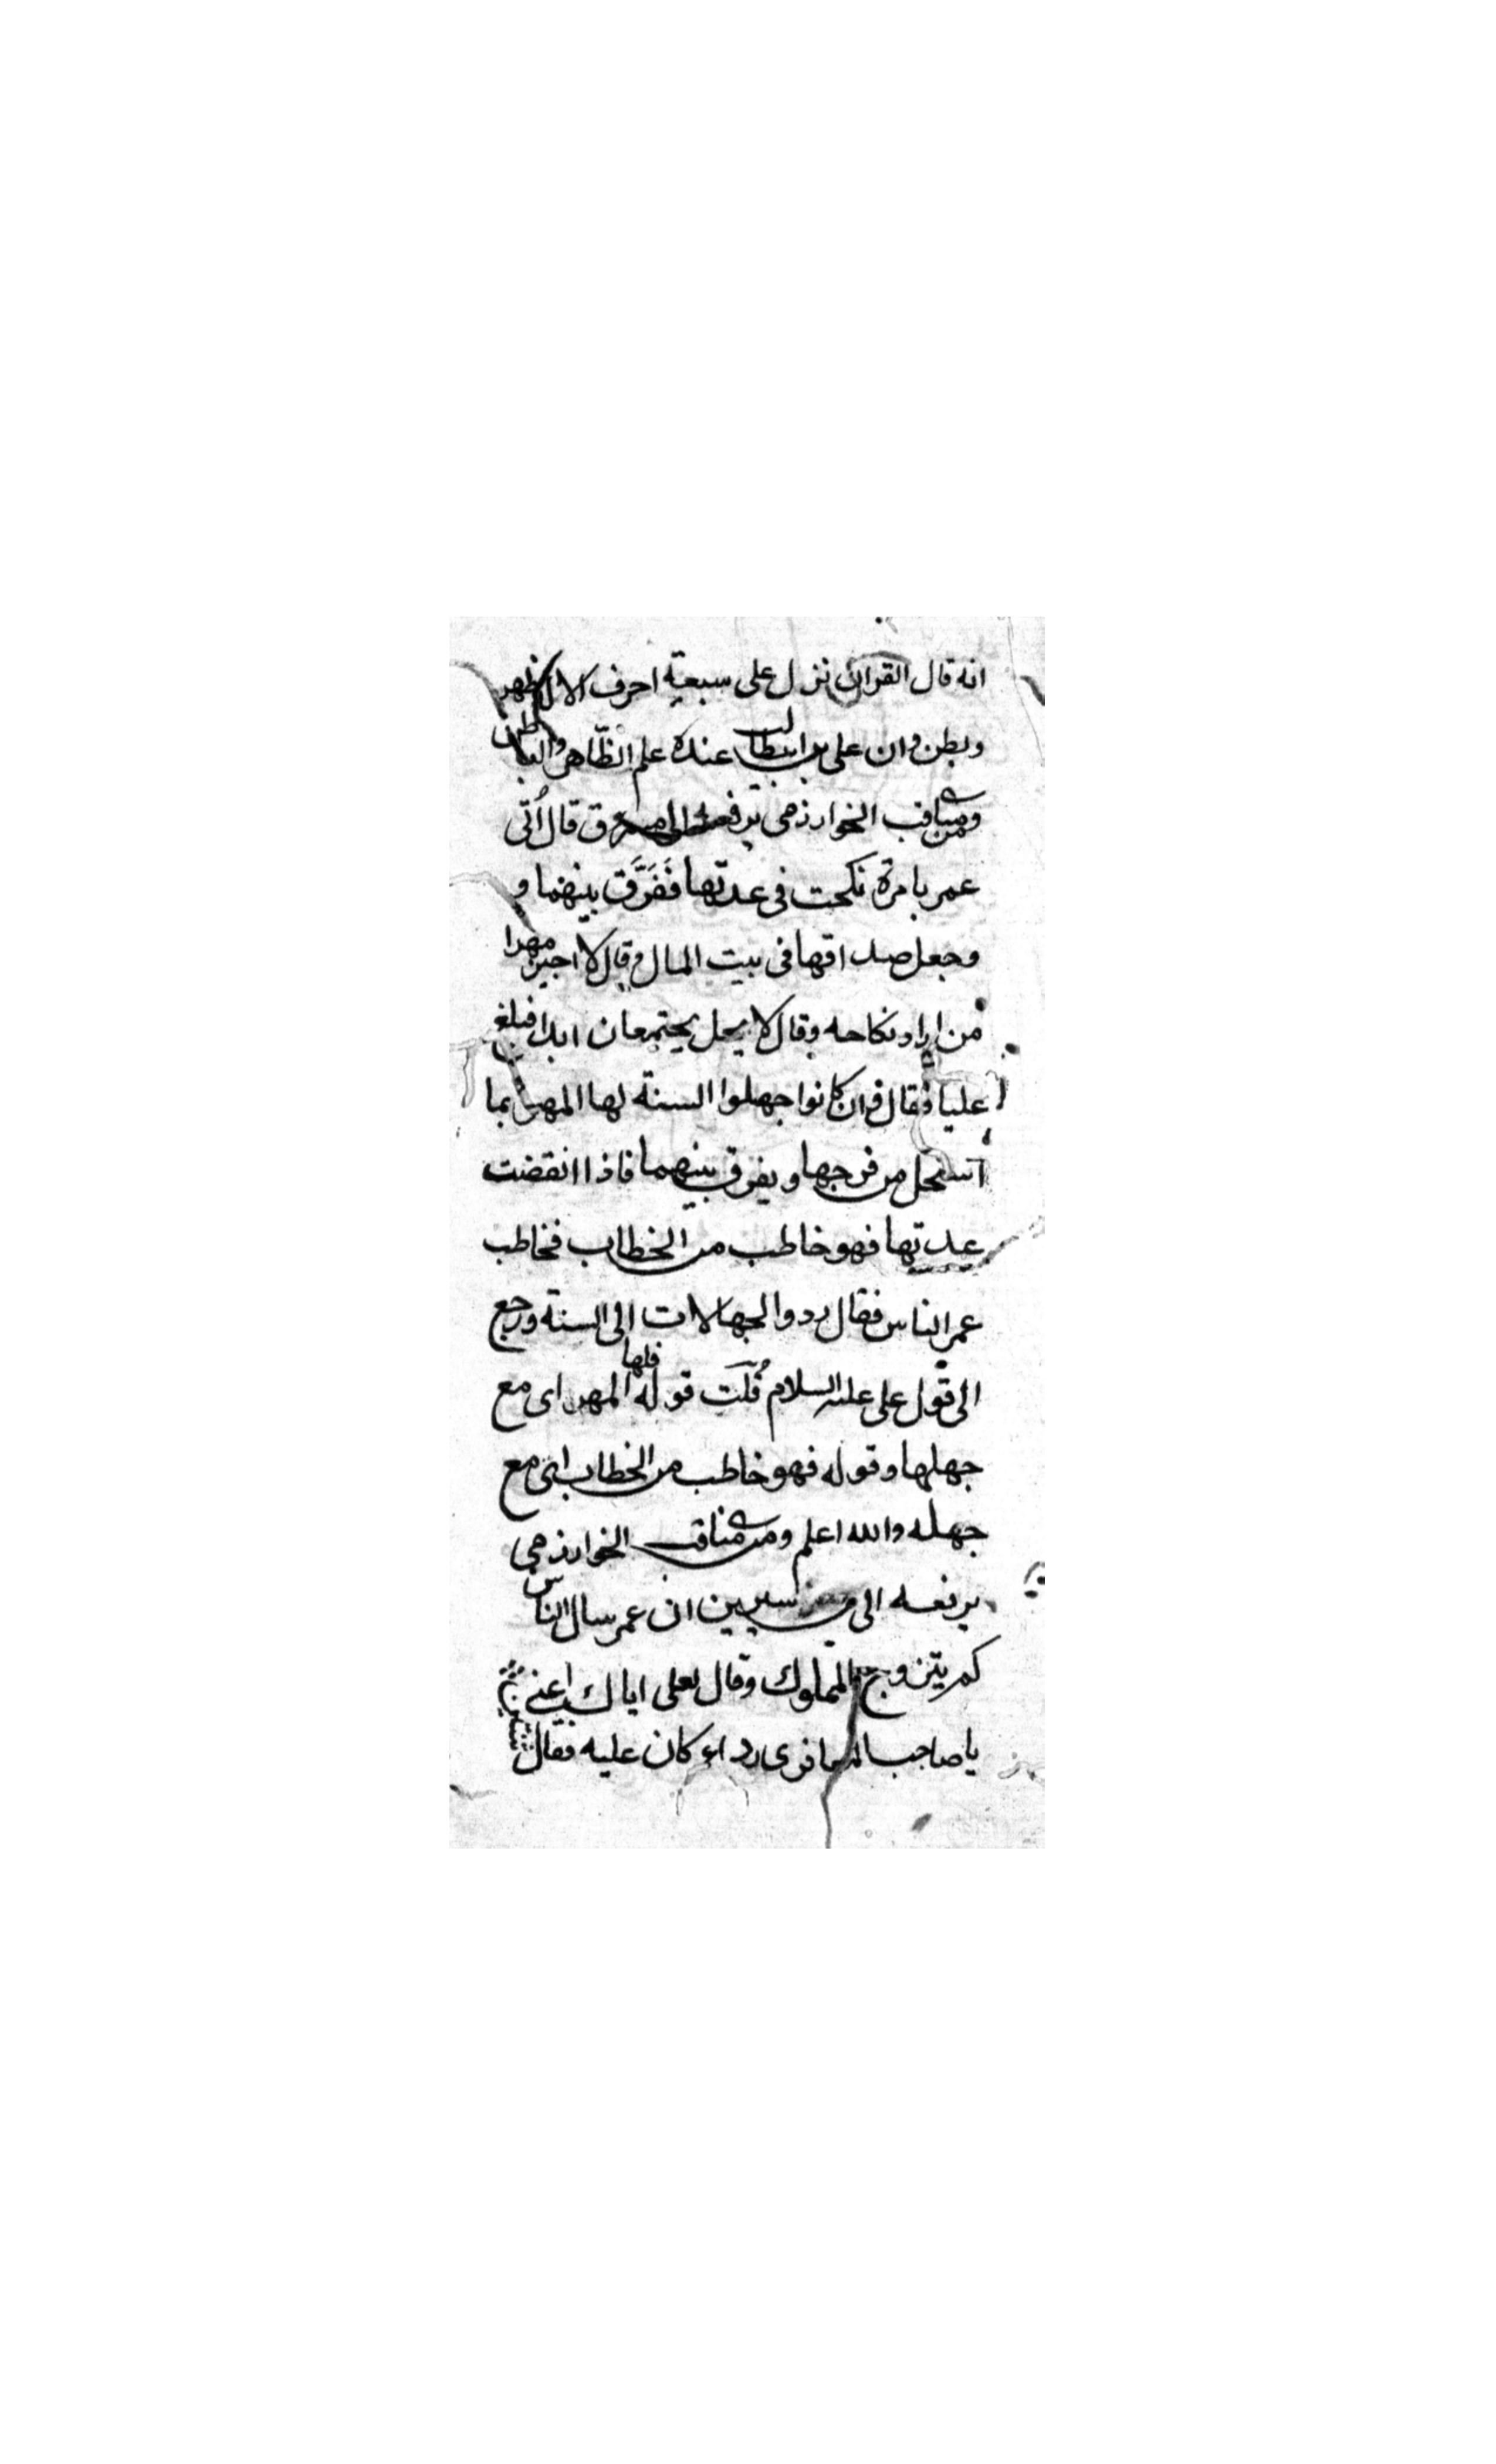 انه قال القران نزل على سبعة احرف الا لها ظهر
وبطن وان على بن ابيطالب عنده علم الظاهر والباطن
ومن مناقب الخوارزمى يرفعه الى مسروق قال اُتى
عمر بامرة نكحت فى عدتها فَفَرَّق بينهما و
وجعل صداقها فى بيت المال وقال لا اجيز مهرا
من اراد نكاحه وقال لا يحل يجتمعان ابدا فبلغ
عليا فقال فان كانوا جهلوا السنة لها المهر بما
استحل من فرجها ويفرق بينهما فاذا انقضت
عدتها فهو خاطب من الخطاب فخاطب
عمر الناس فقال ردوا لجهالات الى السنة ورجع
الى قول على عليه السلام قُلت قوله فلها المهر اى مع
جهلها وقوله فهو خاطب من الخطاب اى مع
جهله والله اعلم ومن مناقب الخوارزمى
يرفعه الى سيرين ان عمر سال الناس
كم يتزوج المملوك وقال لعلى اياك اعنى
يا صاحب المعافرى رداء كان عليه فقال